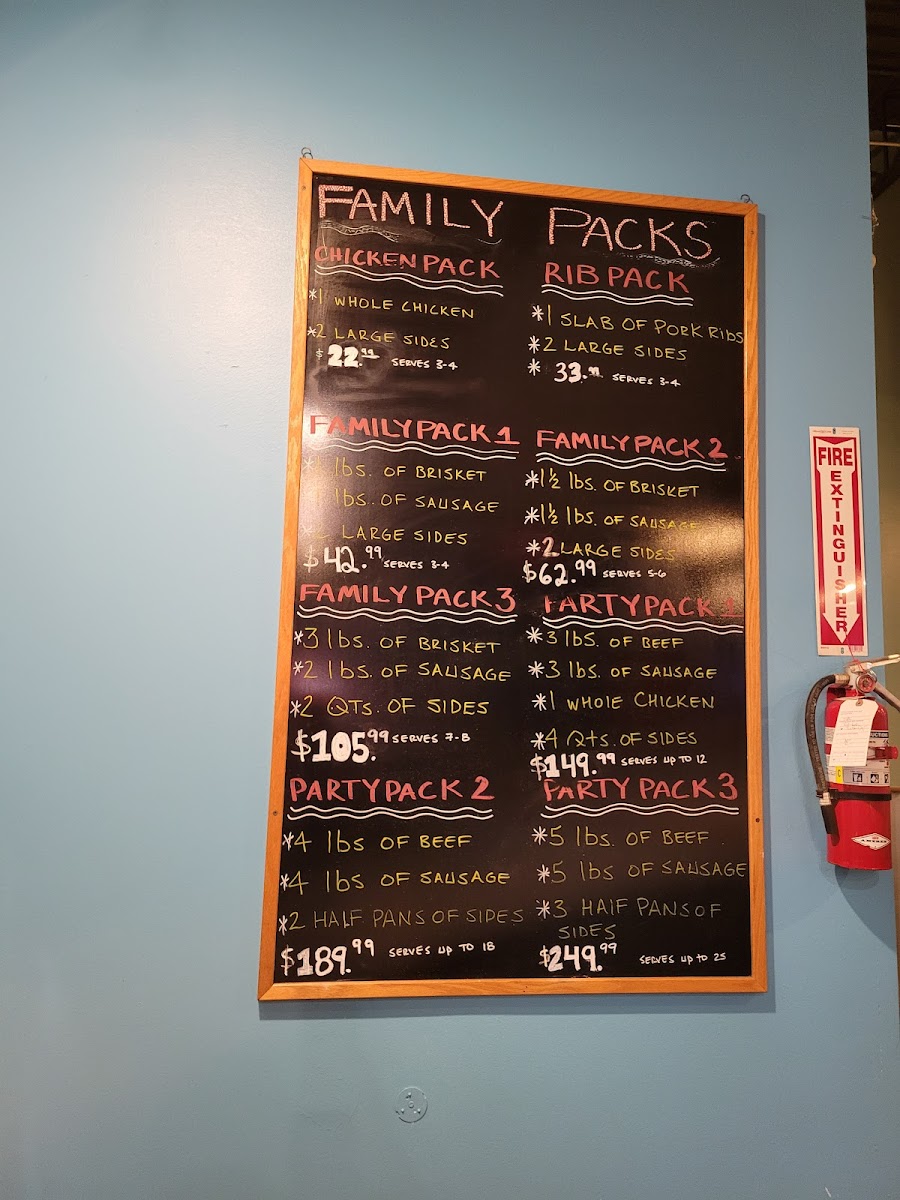 FAMILY PACKS
CHICKEN PACK
*1 WHOLE CHICKEN
*2 LARGE SIDES
$22.99 SERVES 3-4
RIB PACK
*1 SLAB OF PORK RIBS
*2 LARGE SIDES
* 33.99 SERVES 3-4
FAMILY PACK 1
lbs. OF BRISKET
lbs. OF SAUSAGE
LARGE SIDES
$42.99 SERVES 3-4
FAMILY PACK 2
*1½ lbs. OF BRISKET
*1½ lbs. OF SAUSAGE
*2 LARGE SIDES
$62.99 SERVES 5-6
FAMILY PACK 3
*3 lbs. OF BRISKET
*2 lbs. OF SAUSAGE
*2 QTs. OF SIDES
$105.99 SERVES 7-8
PARTY PACK 1
*3 lbs. OF BEEF
*3 lbs. OF SAUSAGE
*1 WHOlE CHICKEN
*4 QTs. OF SIDES
$149.99 SERVES UP TO 12
PARTY PACK 2
*4 lbs OF BEEF
*4 lbs OF SAUSAGE
*2 HALF PANS OF SIDES
$189.99 SERVES UP TO 18
PARTY PACK 3
*5 lbs. OF BEEF
*5 lbs OF SAUSAGE
*3 HAlF PANS OF
SIDES
$249.99 SERVES UP TO 25
FIRE
EXTINGUISHER